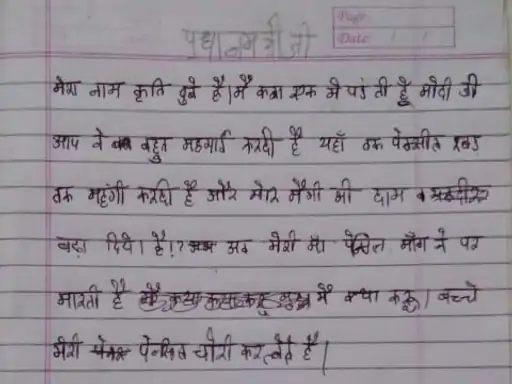 Page:
Date: / /
प्रधानमंत्री जी
मेरा नाम कृति दुबे है। मैं कक्षा एक में पढ़ती हूँ मोदी जी
आप ने बहुत महगाई करदी है यहाँ तक पेन्सील रबड़
तक महंगी करदी है और मेरि मैगी भी दाम
बढ़ा दिये। है!? अब मेरी माँ पेन्सिल माँग ने पर
मारती है मैं क्या करू। बच्चे
मेरी पेन्सिल चोरी कर लेते है।